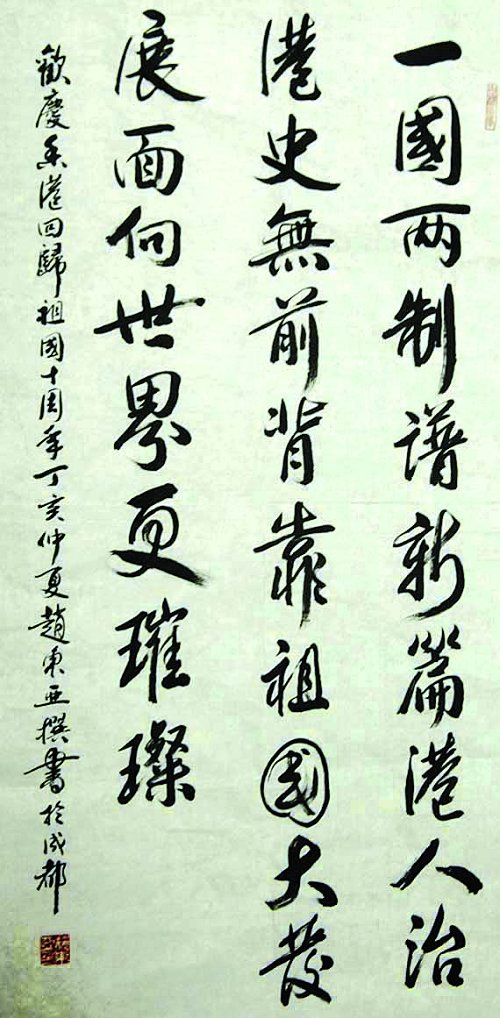 一國两制譜新篇港人治
港史無前背靠祖國大發
展面向世界更璀璨
歡慶香港回歸祖國十周年丁亥仲夏趙東亚撰書於成都